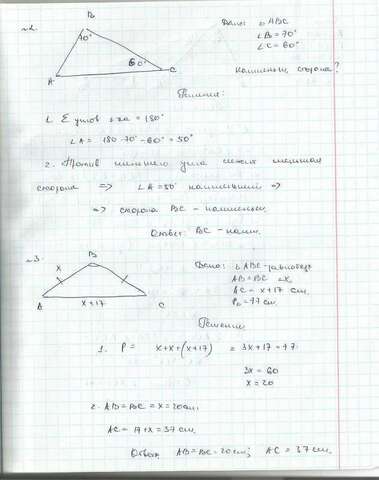 №2.
B
70°
60°
A
C
Дано: △ABC
∠B = 70°
∠C = 60°
наименьш. сторона?
Решение:
1. Σ углов △-ка = 180°
∠A = 180-70°-60° = 50°
2. Против меньшего угла лежит меньшая
сторона => ∠A = 50° наименьший =>
=> сторона BC - наименьш.
Ответ: BC - наим.
№3.
B
x
A
C
x+17
Дано: △ABC - равнобедр
AB = BC = x
AC = x+17 см.
P△ = 77 см.
Решение
1. P = x+x+(x+17) = 3x+17 = 77
3x = 60
x = 20
2. AB = BC = x = 20 см.
AC = 17+x = 37 см.
Ответ: AB = BC = 20 см; AC = 37 см.